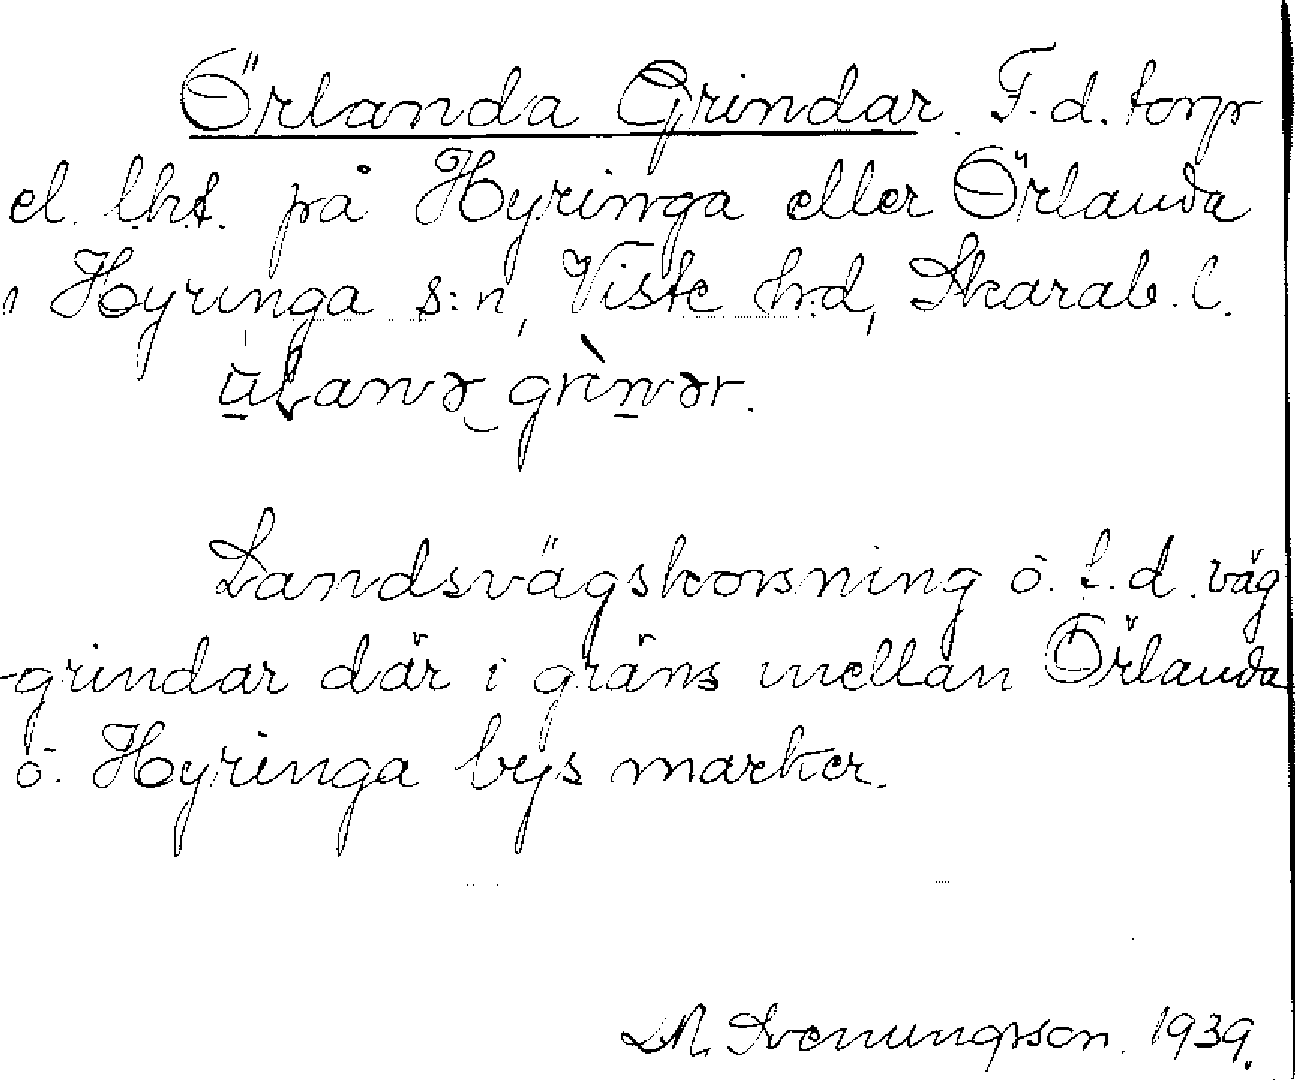 Örlanda Grindar. F.d. torp
el. lht. på Hyringa eller Örlanda
i Hyringa s:n, Viste h:d, Skarab. l.
grìnər.
Landsvägskorsning o. f.d. väg
-grindar där i gräns mellan Örlanda
o. Hyringa bys marker.
Svenungsson. 1939.